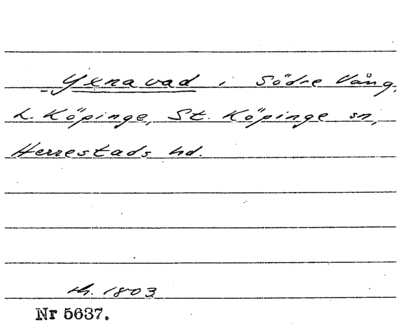 Yxnavad i Södre Vång,
L. Köpinge, St. Köpinge sn,
Herrestads hd.
1803
Nr 5637.